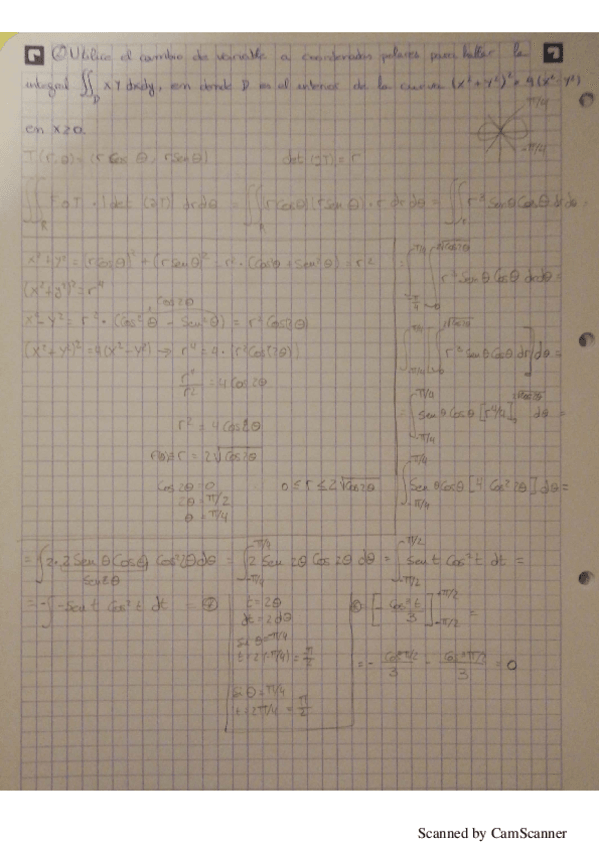 ② Utilice el cambio de variable a coordenadas polares para hallar la
integral ∬_D x y dxdy, en donde D es el interior de la curva (x²+y²)² = 4(x²-y²)
en x≥0.
π/4
-π/4
T(r,θ) = (r Cos θ, r Sen θ) det (∂T) = r
∬_R F∘T · |det (∂T)| drdθ = ∬_R (r cosθ)(r sen θ) · r dr dθ = ∬_R r³ Senθ Cosθ drdθ =
x²+y² = (r cosθ)² + (r senθ)² = r² · (Cos²θ + Sen²θ) = r²
(x²+y²)² = r⁴
Cos2θ
x²-y² = r² · (Cos²θ - Sen²θ) = r² Cos(2θ)
(x²+y²)² = 4(x²-y²) → r⁴ = 4 · (r² Cos(2θ))
r⁴/r² = 4 Cos 2θ
r² = 4 Cos 2θ
r = 2√Cos2θ
Cos 2θ = 0
2θ = π/2
θ = π/4
0 ≤ r ≤ 2√Cos2θ
r³ Sen θ Cos θ drdθ =
[r³ Senθ Cosθ dr] dθ =
= ∫_{-π/4}^{π/4} Senθ Cosθ [r⁴/4] dθ =
∫_{-π/4}^{π/4} Senθ Cosθ [4 Cos² 2θ] dθ =
= ∫ 2·2 Sen θ Cosθ Cos² 2θ dθ = ∫_{-π/4}^{π/4} 2 Sen 2θ Cos 2θ dθ = ∫_{-π/2}^{π/2} Sen t Cos² t dt =
Sen2θ
= -∫ -Sen t Cos² t dt =
t = 2θ
dt = 2dθ
si θ = -π/4
t = 2(-π/4) = π/2
si θ = π/4
t = 2π/4 = π/2
[-Cos³t/3]_{-π/2}^{π/2} =
= - Cos³π/2 / 3 - Cos³π/2 / 3 = 0
Scanned by CamScanner